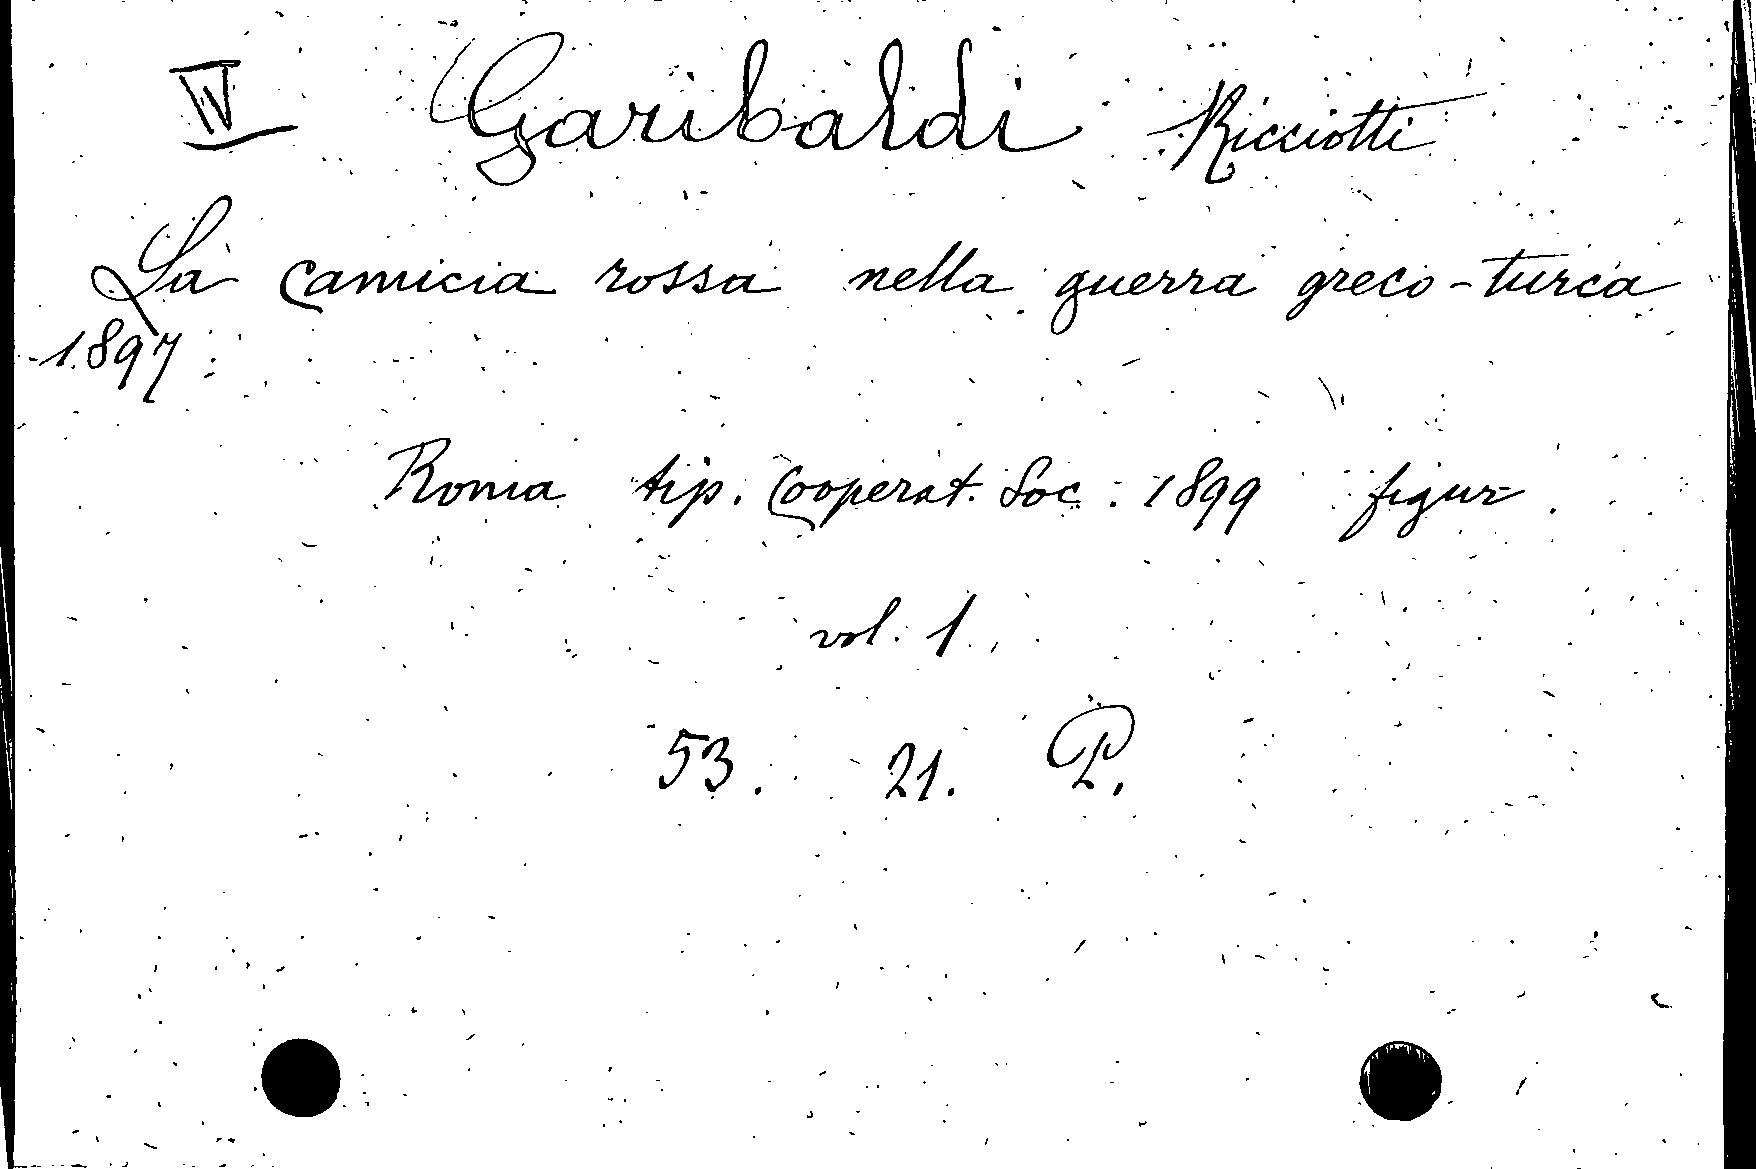 IV Garibaldi Ricciotti
La camicia rossa nella guerra greco-turca
1897.
Roma tip. Cooperat. Soc. 1899 figur.
vol. 1.
53. 21. P.